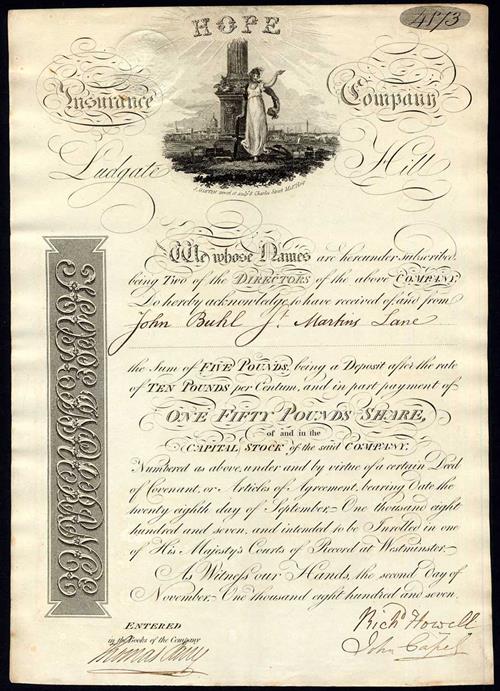 HOPE
4173
Insurance Company
Ludgate Hill
We whose Names are hereunder subscribed,
being Two of the DIRECTORS of the above COMPANY,
Do hereby acknowledge to have received of and from
John Buhl St. Martins Lane
the Sum of FIVE POUNDS, being a Deposit after the rate
of TEN POUNDS per Centum, and in part payment of
ONE FIFTY POUNDS SHARE,
of and in the
CAPITAL STOCK of the said COMPANY.
Numbered as above, under and by virtue of a certain Deed
of Covenant, or Articles of Agreement, bearing Date the
twenty eighth day of September One thousand eight
hundred and seven, and intended to be Inrolled in one
of His Majesty's Courts of Record at Westminster.
As Witness our Hands, the second Day of
November One thousand eight hundred and seven.
ENTERED
in the Books of the Company
Thomas
Richd Howell
John Capel
HOPE INSURANCE